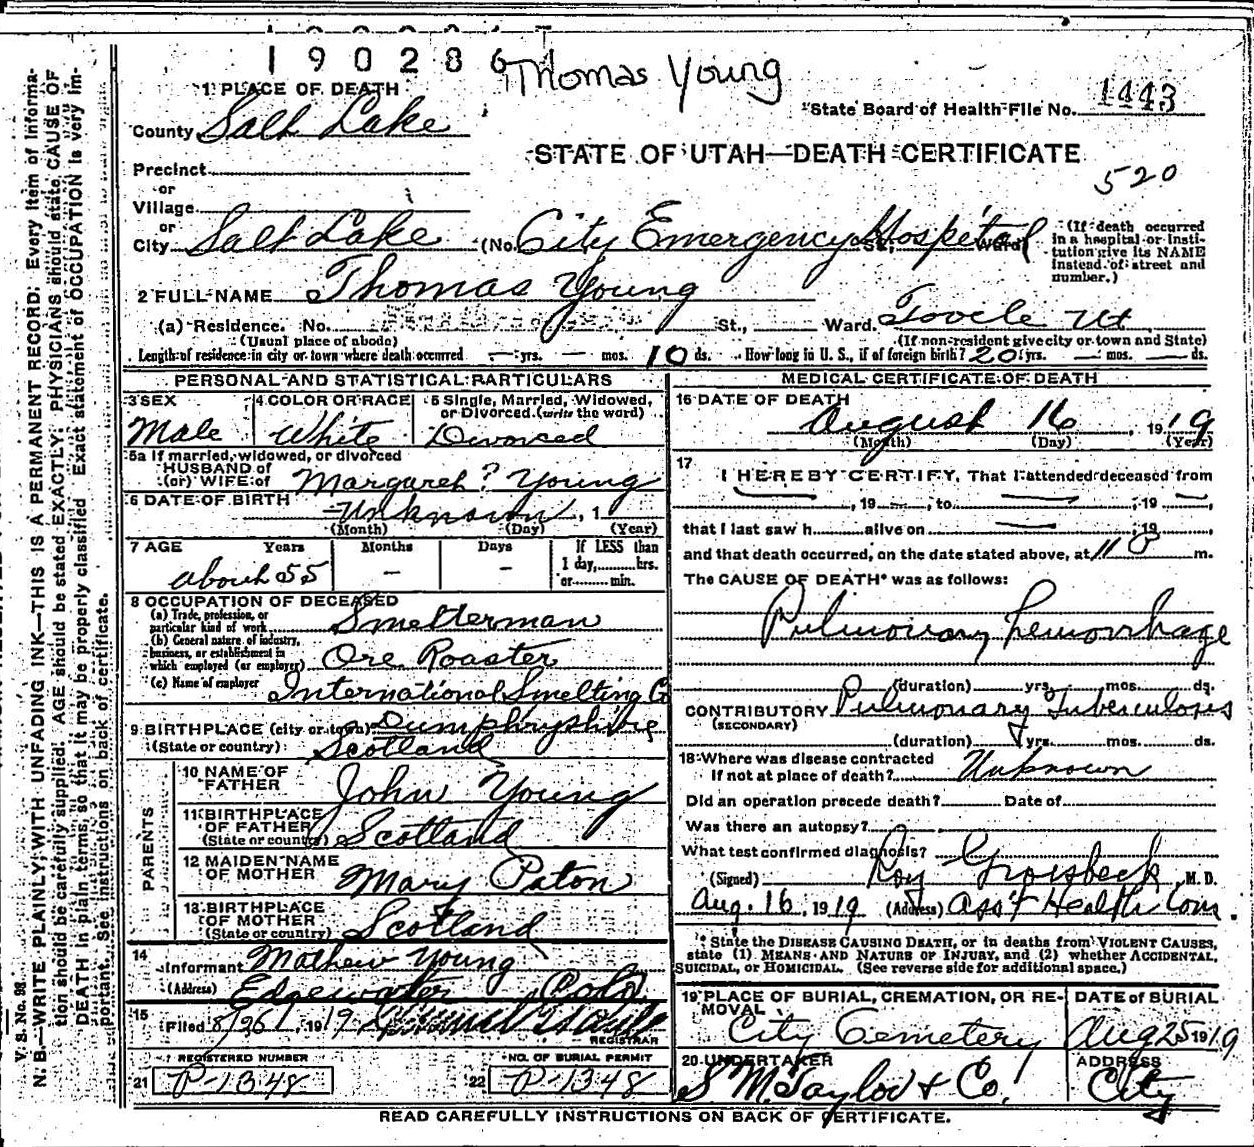 190286
Thomas Young
1 PLACE OF DEATH
State Board of Health File No. 1443
County Salt Lake
STATE OF UTAH—DEATH CERTIFICATE
520
Precinct
or
Village
or
City Salt Lake (No. City Emergency Hospital St., Ward)
(If death occurred in a hospital or institution give its NAME instead of street and number.)
2 FULL NAME Thomas Young
(a) Residence. No. St., Ward. Tooele Ut
(Usual place of abode) (If non-resident give city or town and State)
Length of residence in city or town where death occurred — yrs. — mos. 10 ds. How long in U. S., if of foreign birth? 20 yrs. — mos. — ds.
PERSONAL AND STATISTICAL PARTICULARS
3 SEX Male
4 COLOR OR RACE White
5 Single, Married, Widowed, or Divorced (write the word) Divorced
5a If married, widowed, or divorced
HUSBAND of
(or) WIFE of Margaret? Young
6 DATE OF BIRTH Unknown, 1
(Month) (Day) (Year)
7 AGE Years Months Days If LESS than
1 day, hrs.
about 55 — — or min.
8 OCCUPATION OF DECEASED
(a) Trade, profession, or particular kind of work Smelterman
(b) General nature of industry, business, or establishment in which employed (or employer) Ore Roaster
(c) Name of employer International Smelting Co
9 BIRTHPLACE (city or town) Dumphryshire
(State or country) Scotland
PARENTS
10 NAME OF FATHER John Young
11 BIRTHPLACE OF FATHER (State or country) Scotland
12 MAIDEN NAME OF MOTHER Mary Paton
13 BIRTHPLACE OF MOTHER (State or country) Scotland
14 Informant Mathew Young
(Address) Edgewater Colo.
15 Filed 8/26, 1919
REGISTRAR
REGISTERED NUMBER
21 P-1348
NO. OF BURIAL PERMIT
22 P-1348
MEDICAL CERTIFICATE OF DEATH
16 DATE OF DEATH
August 16, 1919
(Month) (Day) (Year)
17 I HEREBY CERTIFY, That I attended deceased from
—, 19 —, to —, 19 —,
that I last saw h alive on —, 19 ,
and that death occurred, on the date stated above, at m.
The CAUSE OF DEATH* was as follows:
Pulmonary hemorrhage
(duration) yrs. mos. ds.
CONTRIBUTORY Pulmonary Tuberculosis
(SECONDARY)
(duration) yrs. mos. ds.
18 Where was disease contracted
if not at place of death? Unknown
Did an operation precede death? Date of
Was there an autopsy?
What test confirmed diagnosis?
(Signed) Roy Groesbeck, M. D.
Aug. 16, 1919 (Address) Ass't Health Com.
* State the DISEASE CAUSING DEATH, or in deaths from VIOLENT CAUSES, state (1) MEANS AND NATURE OF INJURY, and (2) whether ACCIDENTAL, SUICIDAL, or HOMICIDAL. (See reverse side for additional space.)
19 PLACE OF BURIAL, CREMATION, OR REMOVAL City Cemetery
DATE of BURIAL Aug 25 1919
20 UNDERTAKER S. M. Taylor & Co.
ADDRESS City
READ CAREFULLY INSTRUCTIONS ON BACK OF CERTIFICATE.
V. S. No. 98.
N. B.—WRITE PLAINLY, WITH UNFADING INK—THIS IS A PERMANENT RECORD. Every item of information should be carefully supplied. AGE should be stated EXACTLY. PHYSICIANS should state CAUSE OF DEATH in plain terms, so that it may be properly classified. Exact statement of OCCUPATION is very important. See instructions on back of certificate.